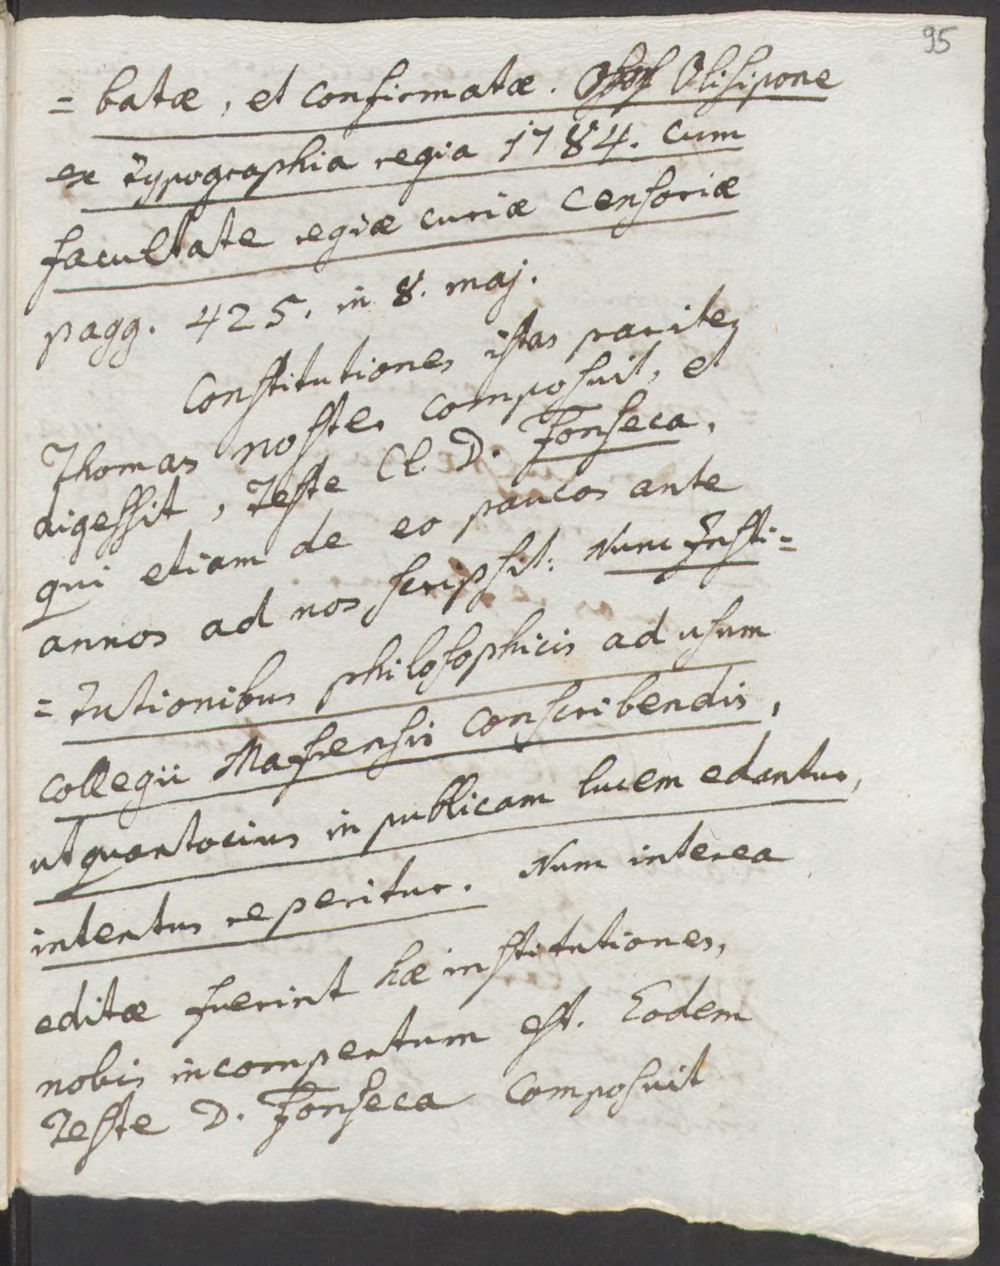 95
= batæ, et confirmatæ. Olisipone
ex Typographia regia 1784. cum
facultate regiæ curiæ censoriæ
pagg. 425. in 8. maj.
Constitutiones istas pariter
Thomas noster composuit, et
digessit, Teste Cl. D. Fonseca,
qui etiam de eo paucos ante
annos ad nos scripsit: Nunc Insti=
= tutionibus philosophicis ad usum
collegii Mafrensis conscribendis,
ut quantocius in publicam lucem edantur,
intentus reperitur. Num interea
editæ fuerint hæ institutiones,
nobis incompertum est. Eodem
Teste D. Fonseca composuit